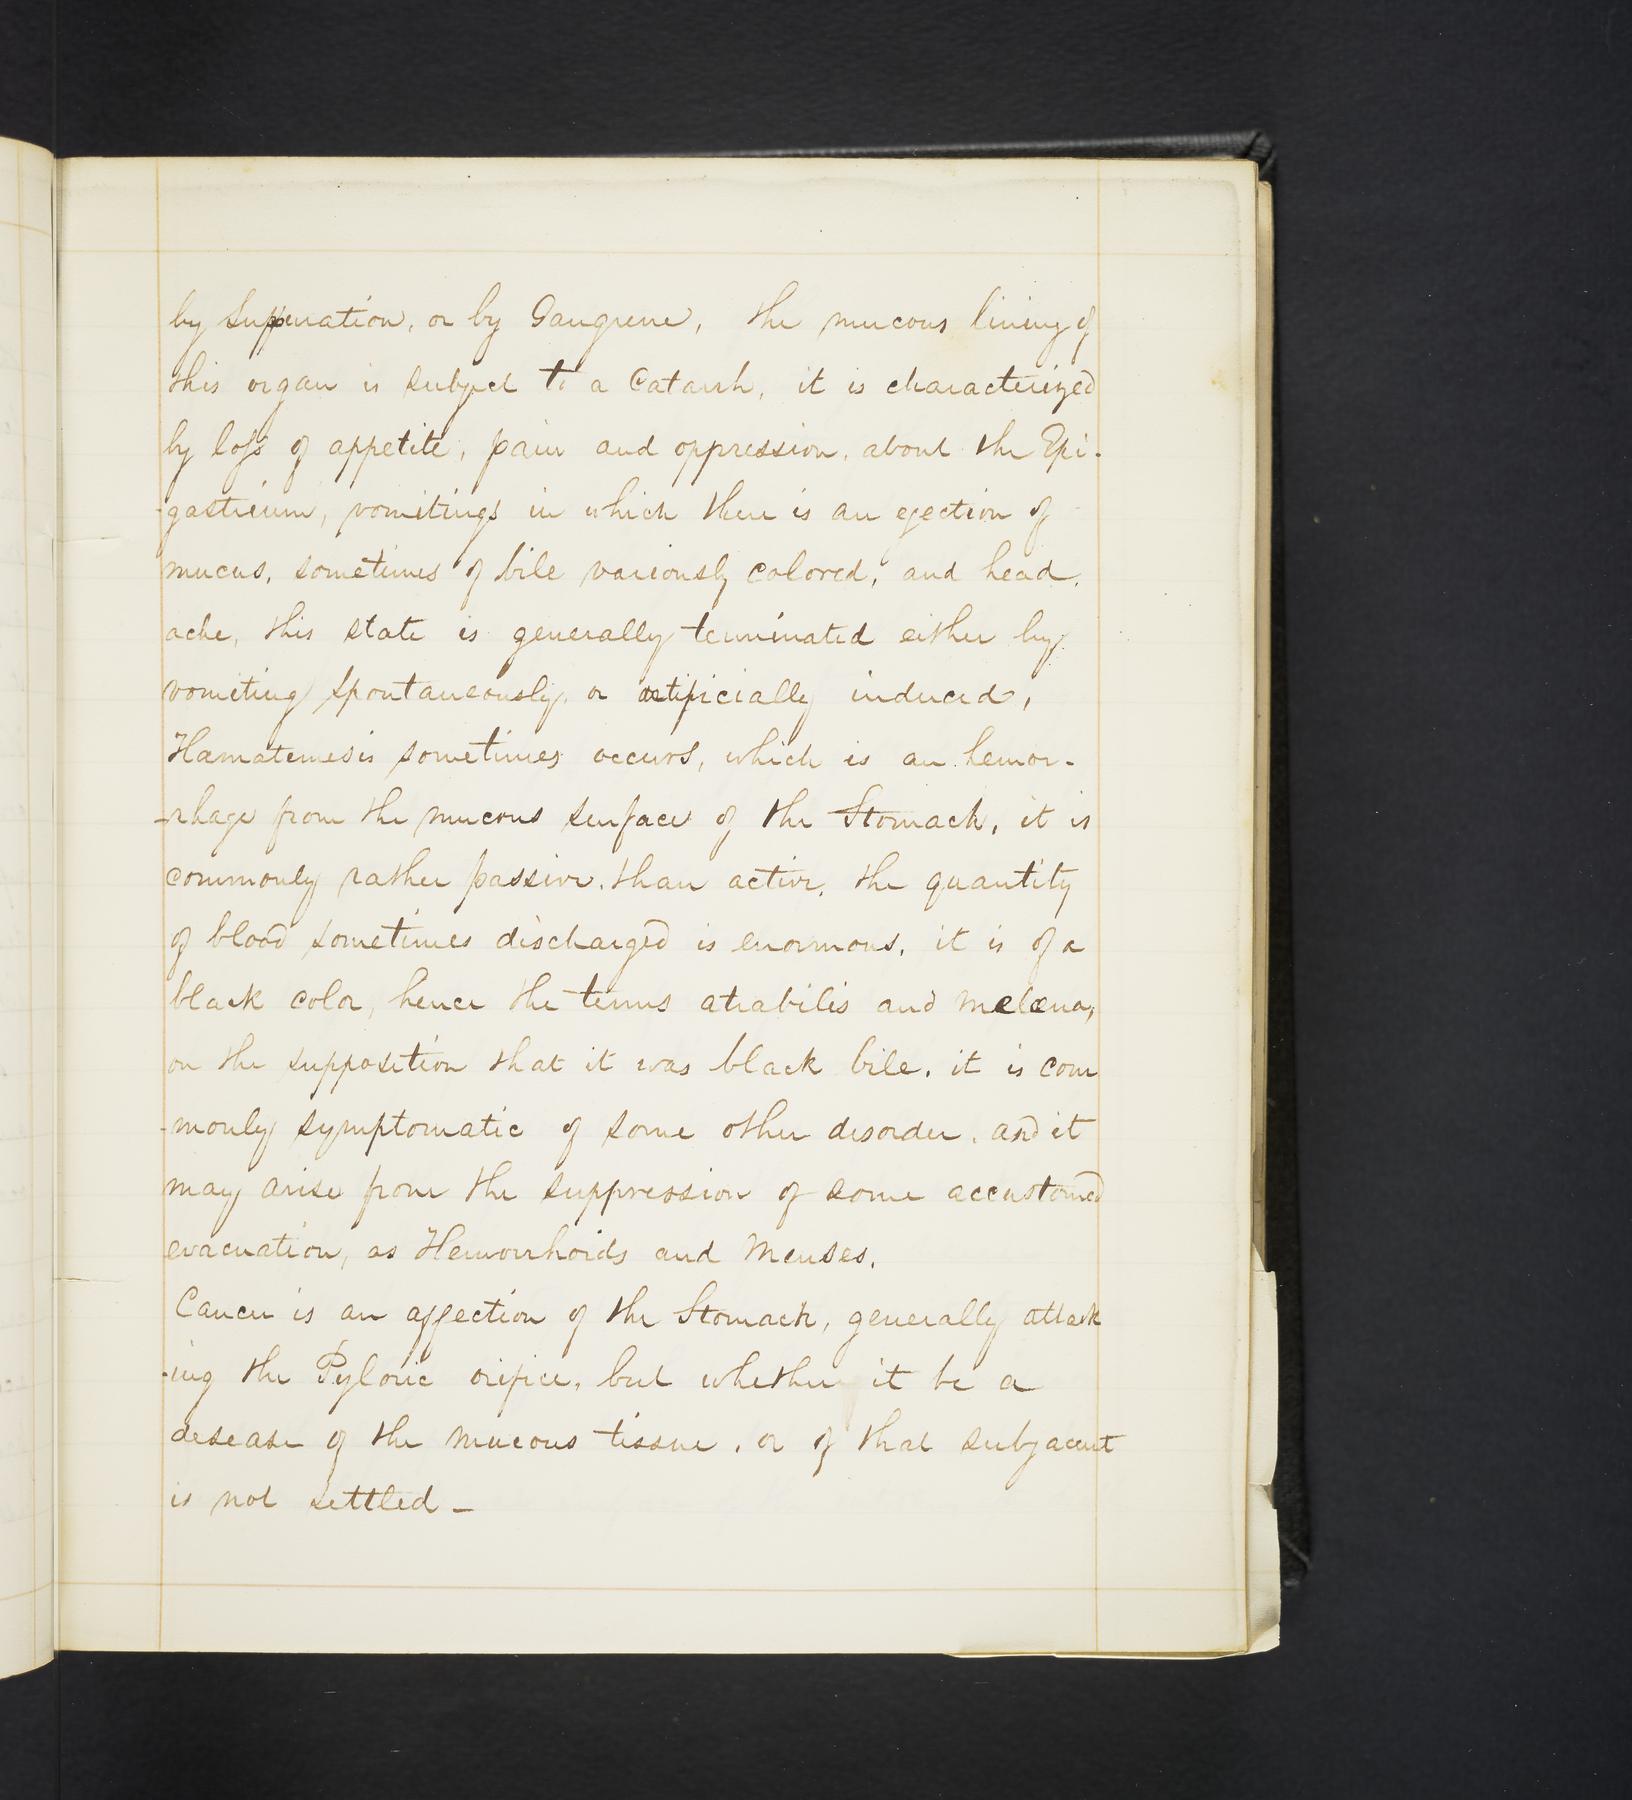 by Suppuration, or by Gangrene, the mucous lining of
this organ is subject to a Catarrh, it is characterized
by loss of appetite, pain and oppression, about the Epi-
-gastrium, vomitings in which there is an ejection of
mucus, sometimes of bile variously colored, and head.
ache, this state is generally terminated either by
vomiting spontaneously, or artificially induced,
Hamatemesis sometimes occurs, which is an hemor-
-rhage from the mucous surface of the Stomach, it is
commonly rather passive, than active, the quantity
of blood sometimes discharged is enormous, it is of a
black color, hence the terms atrabilis and Melæna,
on the supposition that it was black bile. it is com
-monly symptomatic of some other disorder, and it
may arise from the suppression of some accustomed
evacuation, as Hemorrhoids and Menses.
Cancer is an affection of the Stomach, generally attack
-ing the Pyloric orifice, but whether it be a
desease of the mucous tissue, or of that subjacent
is not settled -